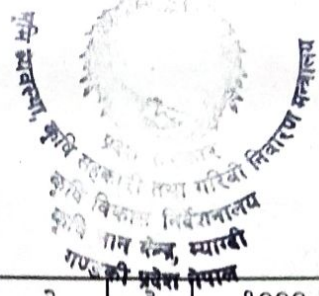 भूमि व्यवस्था, कृषि सहकारी तथा गरिबी निवारण मन्त्रालय
कृषि विकास निर्देशनालय
कृषि ज्ञान केन्द्र, म्याग्दी
गण्डकी प्रदेश नेपाल